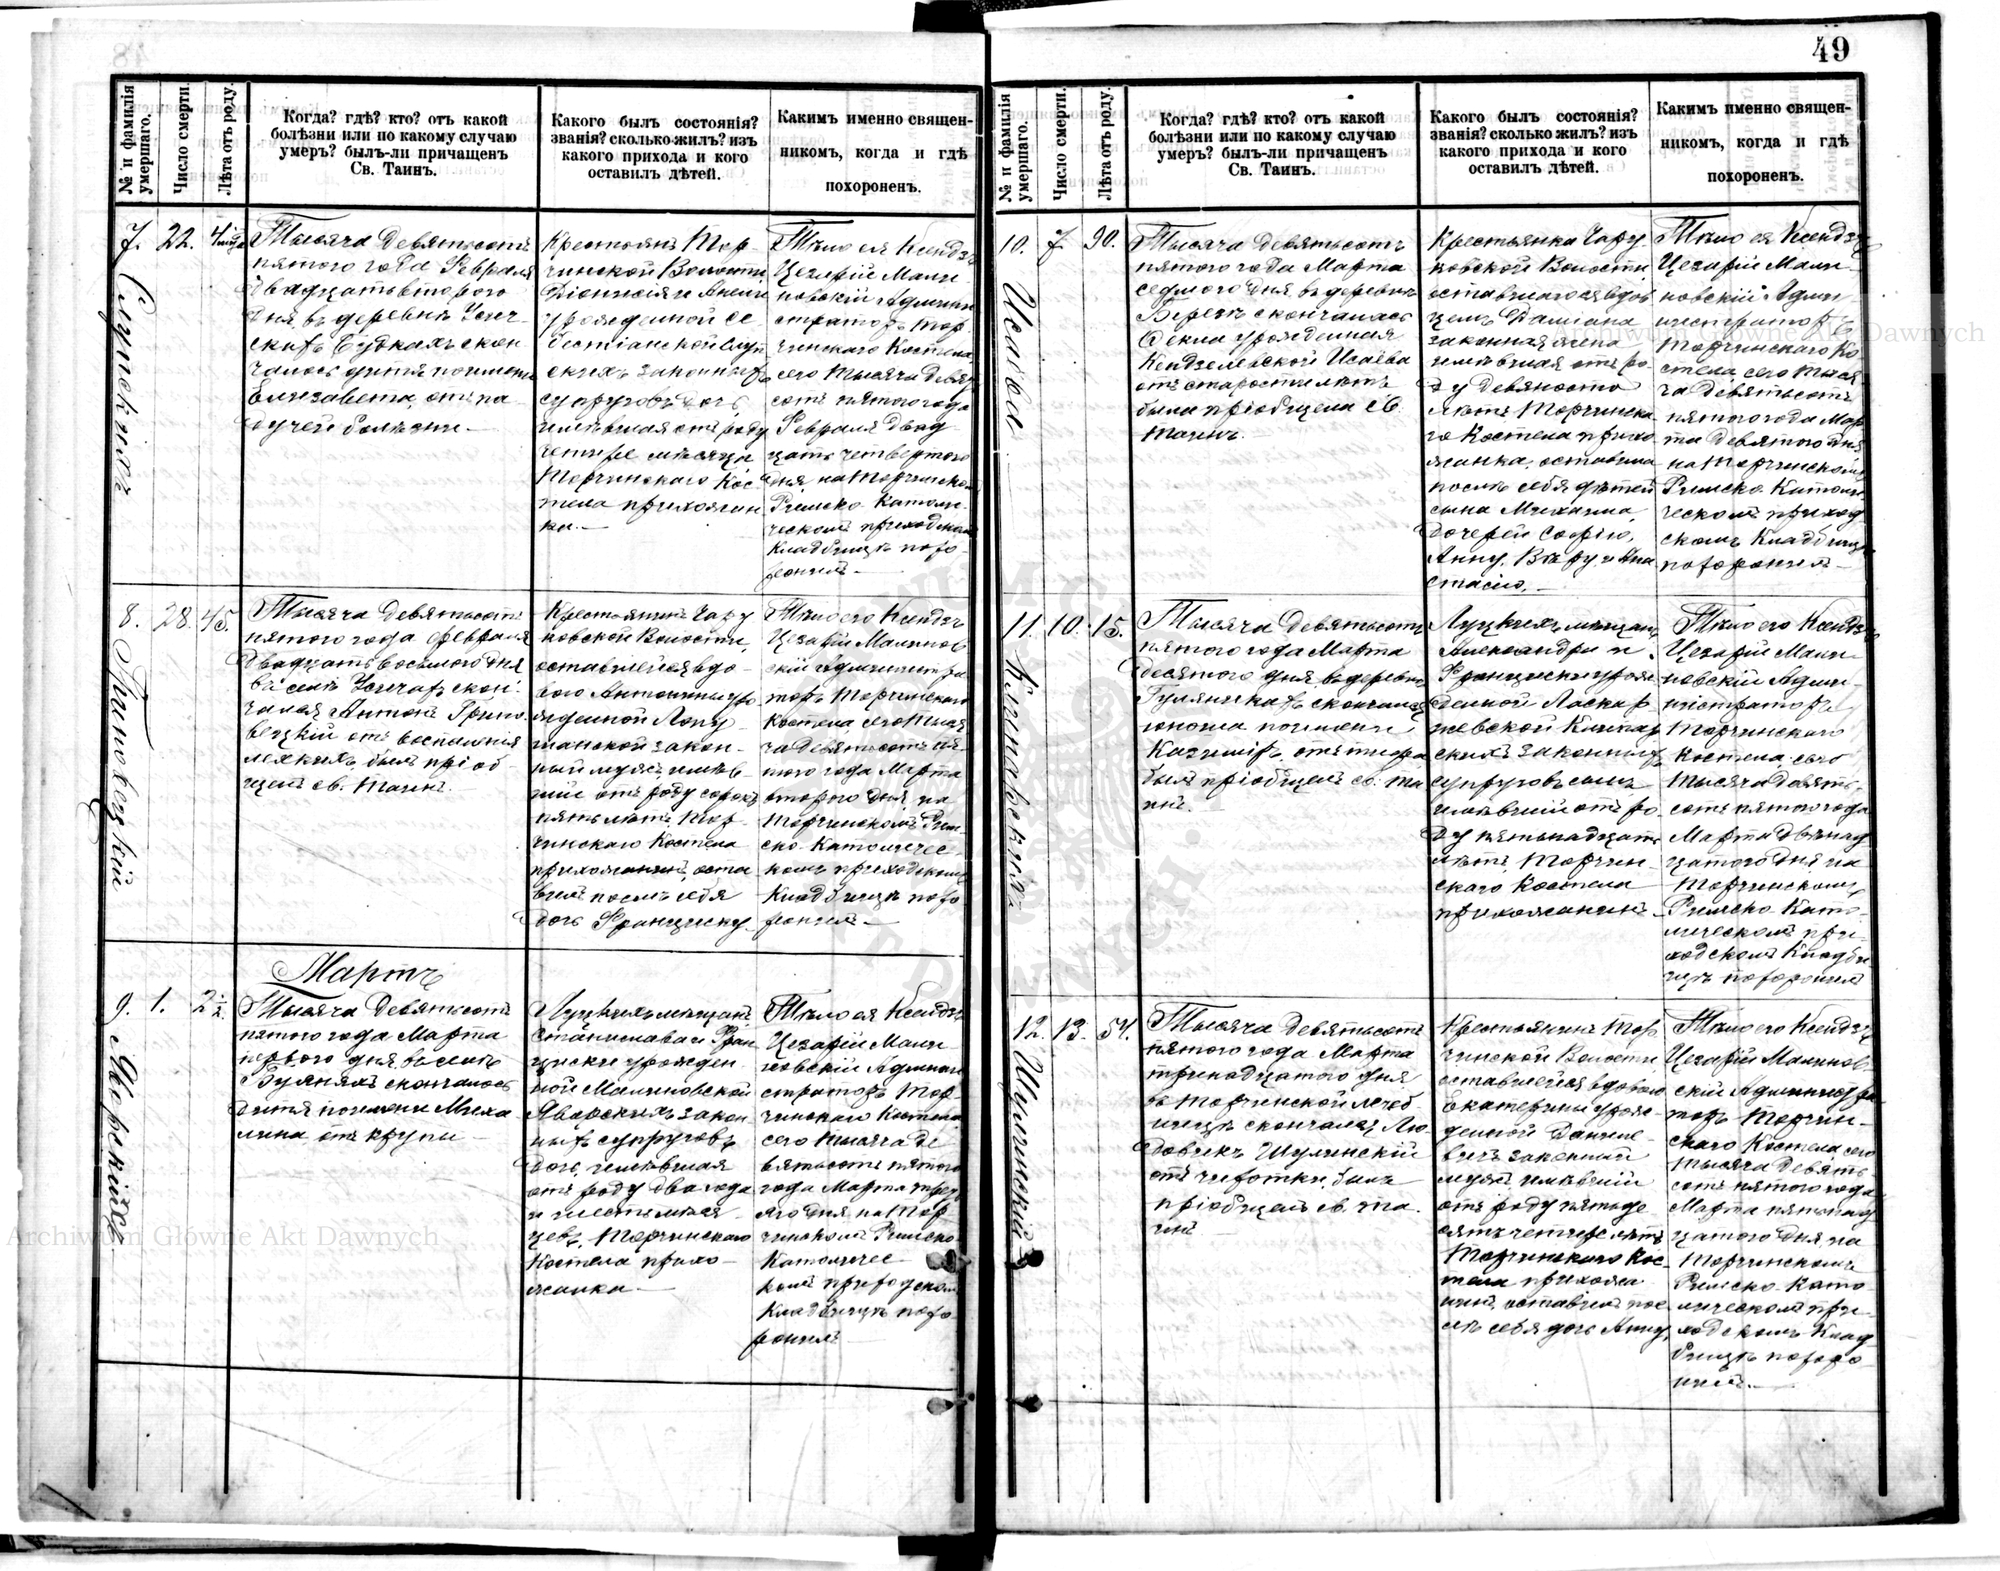 49
№ и фамилія умершаго.
Число смерти.
Лѣта отъ роду.
Когда? гдѣ? кто? отъ какой
болѣзни или по какому случаю
умеръ? былъ-ли причащенъ
Св. Таинъ.
Какого былъ состоянія?
званія? сколько жилъ? изъ
какого прихода и кого
оставилъ дѣтей.
Какимъ именно священ-
никомъ, когда и гдѣ
похороненъ.
7.
22.
Тысяча девятьсотъ
пятого года Февраля
двадцать второго
дня въ деревнѣ
скон
чалось дитя по имени
Елизавета, отъ па
дучей болѣзни.
Крестьянъ Тор-
чинской Волости
Діонисія и
урожденной Се
законныхъ
супруговъ дочь,
имѣвшая отъ роду
четыре мѣсяца
Торчинскаго Кос-
тела прихожан
ка.
Тѣло ея Ксендзъ
Цезарій Мали
новскій Админи
страторъ Тор-
чинскаго Костела
сего тысяча девять
сотъ пятого года
Февраля двад
цать четвертого
дня, на Торчинском
Римско-Католи-
ческомъ приходскомъ
Кладбищѣ похо-
ронилъ
8.
28.
45.
Тысяча девятьсотъ
пятого года Февраля
двадцать восьмого дня
въ селѣ скон-
чался Антонъ Грино
вецкій отъ воспаленія
легкихъ, былъ пріоб-
щенъ св. Таинъ.
Гриновецкій
Крестьянинъ Чару
ковской Волости,
оставшейся вдо-
вою Антонины уро
жденной
закон-
ный мужъ, имѣв-
шій отъ роду сорокъ
пять лѣтъ, Тор-
чинскаго Костела
прихожанинъ, оста
вилъ послѣ себя
дочь Францишку
Тѣло его Ксендзъ
Цезарій Малинов
скій Администра-
торъ Торчинскаго
Костела, сего тыся
ча девятьсотъ пя-
того года Марта
второго дня, на
Торчинскомъ Рим-
ско-Католичес-
комъ приходскомъ
Кладбищѣ похо
ронилъ
Мартъ
9.
1.
2½
Тысяча девятьсотъ
пятого года Марта
перваго дня въ селѣ
Буянахъ скончалось
дитя по имени Миха
лина отъ крупы
Луцкихъ мѣщанъ
Станислава и Фран
циски урожден
ной Малиновской
Яворскихъ закон
ныхъ супруговъ
дочь, имѣвшая
отъ роду два года
и шесть мѣся
цевъ, Торчинскаго
Костела прихо-
жанка
Тѣло ея Ксендзъ
Цезарій Мали
новскій Админи
страторъ Тор-
чинскаго Костела
сего тысяча де
вятьсотъ пятого
года Марта треть
яго дня на Тор
чинскомъ Римско-
Католичес
комъ приходскомъ
Кладбищѣ похо
ронилъ
№ и фамилія умершаго.
Число смерти.
Лѣта отъ роду.
Когда? гдѣ? кто? отъ какой
болѣзни или по какому случаю
умеръ? былъ-ли причащенъ
Св. Таинъ.
Какого былъ состоянія?
званія? сколько жилъ? изъ
какого прихода и кого
оставилъ дѣтей.
Какимъ именно священ-
никомъ, когда и гдѣ
похороненъ.
10.
7.
90.
Тысяча девятьсотъ
пятого года Марта
седмого дня, въ деревнѣ
скончалась
Ѳекла урожденная
Исаева
отъ старости лѣтъ
была пріобщена Св.
Таинъ.
Крестьянка Чару
ковской Волости
оставшагося вдов
цемъ Даміана
законная жена
имѣвшая отъ ро-
ду девяносто
лѣтъ, Торчинска
го Костела прихо
жанка, оставила
послѣ себя дѣтей
сына Михаила,
дочерей Софію,
Анну, Вѣру и Ана
стасію.
Тѣло ея Ксендзъ
Цезарій Мали
новскій Адми
нистраторъ
Торчинскаго Ко
стела, сего тыся
ча девятьсотъ
пятого года Мар
та девятого дня
на Торчинскомъ
Римско-Католи
ческомъ приход
скомъ Кладбищѣ
похоронилъ
11.
10.
15.
Тысяча девятьсотъ
пятого года Марта
десятого дня въ деревнѣ
скончался
юноша по имени
Казиміръ, отъ тифа
былъ пріобщенъ св. Та
инъ.
Луцкихъ мѣщанъ
Александра и
Францишки урож
денной
законныхъ
супруговъ сынъ
имѣвшій отъ ро
ду пятьнадцать
лѣтъ, Торчин-
скаго Костела
прихожанинъ
Тѣло его Ксендзъ
Цезарій Мали
новскій Адми-
нистраторъ
Торчинскаго
Костела, сего
тысяча девять
сотъ пятого года
Марта двѣнад
цатого дня, на
Торчинскомъ
Римско-Като-
лическомъ при-
ходскомъ Кладби
щѣ похоронилъ
12.
13.
54.
Тысяча девятьсотъ
пятого года Марта
тринадцатого дня
въ Торчинской лечеб-
ницѣ скончался Лю-
довикъ Шулинскій
отъ чахотки, былъ
пріобщенъ св. та
инъ
Крестьянинъ Тор
чинской Волости
оставшейся вдовою
Екатерины урож-
денной Даниле-
вичъ законный
мужъ имѣвшій
отъ роду пятьде
сятъ четыре лѣтъ
Торчинскаго Кос-
тела прихожа
нинъ, оставилъ пос
лѣ себя дочь Анну
Тѣло его Ксендзъ
Цезарій Малинов-
скій Администра
торъ Торчин-
скаго Костела сего
тысяча девять
сотъ пятого года
Марта пятьнад
цатого дня, на
Торчинскомъ
Римско-Като
лическомъ при-
ходскомъ Клад
бищѣ похоро
нилъ.
Archiwum Główne Akt Dawnych
Archiwum Główne Akt Dawnych